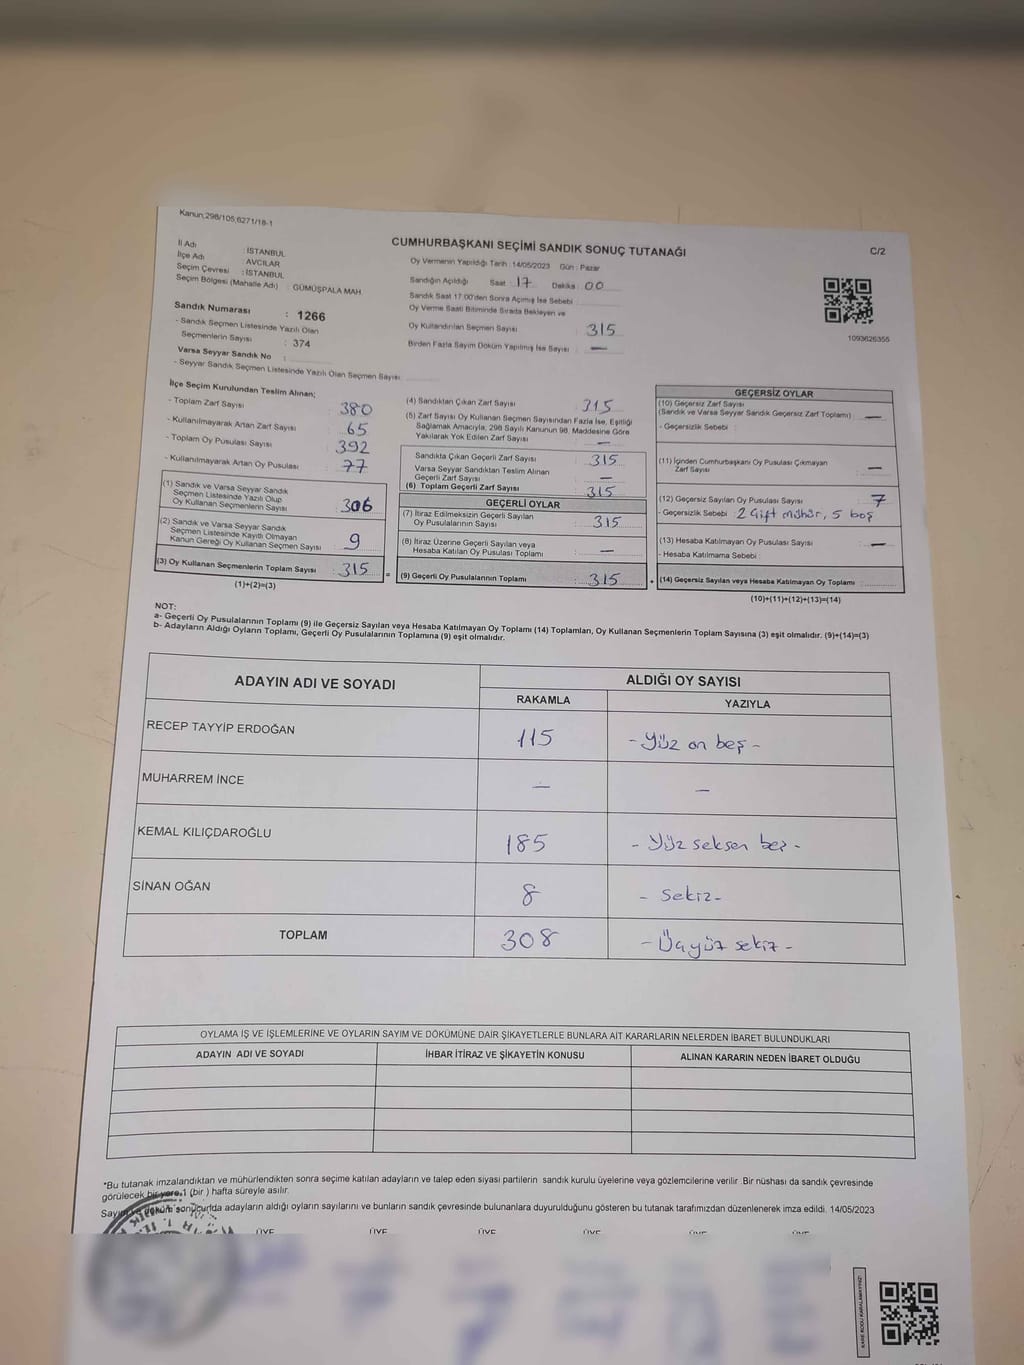 Kanun;298/105;6271/18-1
CUMHURBAŞKANI SEÇİMİ SANDIK SONUÇ TUTANAĞI
C/2
İl Adı : İSTANBUL
İlçe Adı : AVCILAR
Seçim Çevresi : İSTANBUL
Seçim Bölgesi (Mahalle Adı) : GÜMÜŞPALA MAH.
Oy Vermenin Yapıldığı Tarih : 14/05/2023 Gün : Pazar
Sandığın Açıldığı Saat 17 Dakika 00
Sandık Saat 17:00'den Sonra Açılmış İse Sebebi
Oy Verme Saati Bitiminde Sırada Bekleyen ve
Oy Kullandırılan Seçmen Sayısı 315
Birden Fazla Sayım Döküm Yapılmış İse Sayısı : —
1093626355
Sandık Numarası : 1266
- Sandık Seçmen Listesinde Yazılı Olan
Seçmenlerin Sayısı : 374
Varsa Seyyar Sandık No :
- Seyyar Sandık Seçmen Listesinde Yazılı Olan Seçmen Sayısı
İlçe Seçim Kurulundan Teslim Alınan;
- Toplam Zarf Sayısı : 380
- Kullanılmayarak Artan Zarf Sayısı : 65
- Toplam Oy Pusulası Sayısı : 392
- Kullanılmayarak Artan Oy Pusulası : 77
(1) Sandık ve Varsa Seyyar Sandık
Seçmen Listesinde Yazılı Olup
Oy Kullanan Seçmenlerin Sayısı : 306
(2) Sandık ve Varsa Seyyar Sandık
Seçmen Listesinde Kayıtlı Olmayan
Kanun Gereği Oy Kullanan Seçmen Sayısı : 9
(3) Oy Kullanan Seçmenlerin Toplam Sayısı : 315
(1)+(2)=(3)
(4) Sandıktan Çıkan Zarf Sayısı : 315
(5) Zarf Sayısı Oy Kullanan Seçmen Sayısından Fazla İse, Eşitliği
Sağlamak Amacıyla, 298 Sayılı Kanunun 98. Maddesine Göre
Yakılarak Yok Edilen Zarf Sayısı : —
Sandıkta Çıkan Geçerli Zarf Sayısı : 315
Varsa Seyyar Sandıktan Teslim Alınan
Geçerli Zarf Sayısı : —
(6) Toplam Geçerli Zarf Sayısı : 315
GEÇERLİ OYLAR
(7) İtiraz Edilmeksizin Geçerli Sayılan
Oy Pusulalarının Sayısı : 315
(8) İtiraz Üzerine Geçerli Sayılan veya
Hesaba Katılan Oy Pusulası Toplamı : —
(9) Geçerli Oy Pusulalarının Toplamı : 315
GEÇERSİZ OYLAR
(10) Geçersiz Zarf Sayısı
(Sandık ve Varsa Seyyar Sandık Geçersiz Zarf Toplamı) : —
- Geçersizlik Sebebi :
(11) İçinden Cumhurbaşkanı Oy Pusulası Çıkmayan
Zarf Sayısı : —
(12) Geçersiz Sayılan Oy Pusulası Sayısı : 7
- Geçersizlik Sebebi : 2 Çift mühür, 5 boş
(13) Hesaba Katılmayan Oy Pusulası Sayısı : —
- Hesaba Katılmama Sebebi :
(14) Geçersiz Sayılan veya Hesaba Katılmayan Oy Toplamı :
(10)+(11)+(12)+(13)=(14)
NOT:
a- Geçerli Oy Pusulalarının Toplamı (9) ile Geçersiz Sayılan veya Hesaba Katılmayan Oy Toplamı (14) Toplamları, Oy Kullanan Seçmenlerin Toplam Sayısına (3) eşit olmalıdır. (9)+(14)=(3)
b- Adayların Aldığı Oyların Toplamı, Geçerli Oy Pusulalarının Toplamına (9) eşit olmalıdır.
ADAYIN ADI VE SOYADI
ALDIĞI OY SAYISI
RAKAMLA
YAZIYLA
RECEP TAYYİP ERDOĞAN 115 - Yüz on beş -
MUHARREM İNCE — —
KEMAL KILIÇDAROĞLU 185 - Yüz seksen beş -
SİNAN OĞAN 8 - Sekiz -
TOPLAM 308 - Üçyüz sekiz -
OYLAMA İŞ VE İŞLEMLERİNE VE OYLARIN SAYIM VE DÖKÜMÜNE DAİR ŞİKAYETLERLE BUNLARA AİT KARARLARIN NELERDEN İBARET BULUNDUKLARI
ADAYIN ADI VE SOYADI
İHBAR İTİRAZ VE ŞİKAYETİN KONUSU
ALINAN KARARIN NEDEN İBARET OLDUĞU
*Bu tutanak imzalandıktan ve mühürlendikten sonra seçime katılan adayların ve talep eden siyasi partilerin sandık kurulu üyelerine veya gözlemcilerine verilir. Bir nüshası da sandık çevresinde
görülecek bir yere 1 (bir ) hafta süreyle asılır.
Sayım ve döküm sonucunda adayların aldığı oyların sayılarını ve bunların sandık çevresinde bulunanlara duyurulduğunu gösteren bu tutanak tarafımızdan düzenlenerek imza edildi. 14/05/2023
ÜYE ÜYE ÜYE ÜYE ÜYE ÜYE
KARE KODU KARALAMAYINIZ!